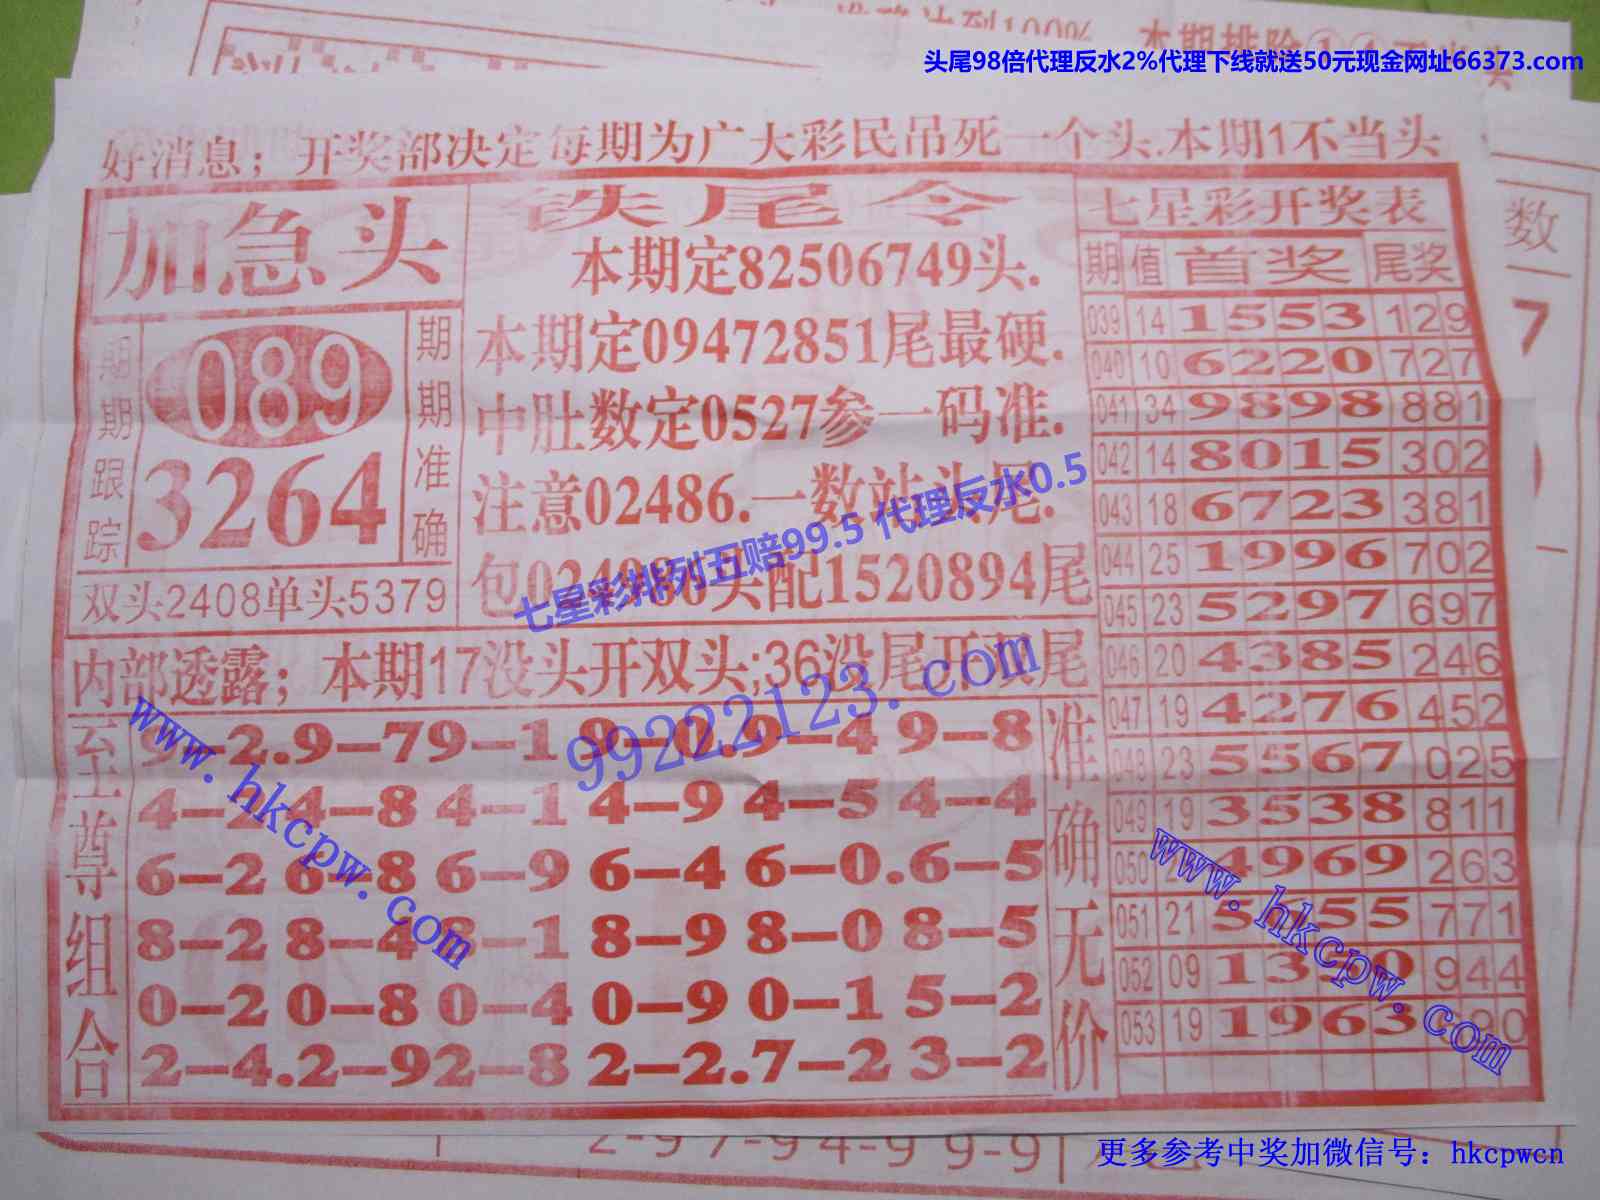 头尾98倍代理反水2%代理下线就送50元现金网址66373.com
好消息；开奖部决定每期为广大彩民吊死一个头.本期1不当头
加急头
期期跟踪
089
3264
期期准确
双头2408单头5379
铁尾令
本期定82506749头.
本期定09472851尾最硬.
中肚数定0527参一码准.
注意02486.一数站头尾.
配1520894尾
七星彩排列五赔99.5 代理反水0.5
内部透露；本期17没头开双头;36没尾开双尾
99222123.com
至尊组合
9-2.9-79-1 9-0.9-4 9-8
4-2 4-8 4-1 4-9 4-5 4-4
6-2 6-8 6-9 6-4 6-0.6-5
8-2 8-4 8-1 8-9 8-0 8-5
0-2 0-8 0-4 0-9 0-1 5-2
2-4.2-92-8 2-2.7-2 3-2
准确无价
七星彩开奖表
期 值 首奖 尾奖
039 14 1553 129
040 10 6220 727
041 34 9898 881
042 14 8015 302
043 18 6723 381
044 25 1996 702
045 23 5297 697
046 20 4385 246
047 19 4276 452
048 23 5567 025
049 19 3538 811
050 4969 263
051 21 5 55 771
052 09 13 0 944
053 19 1963 20
www.hkcpw.com
www.hkcpw.com
数
7
2-97-94-99-9
更多参考中奖加微信号：hkcpwcn